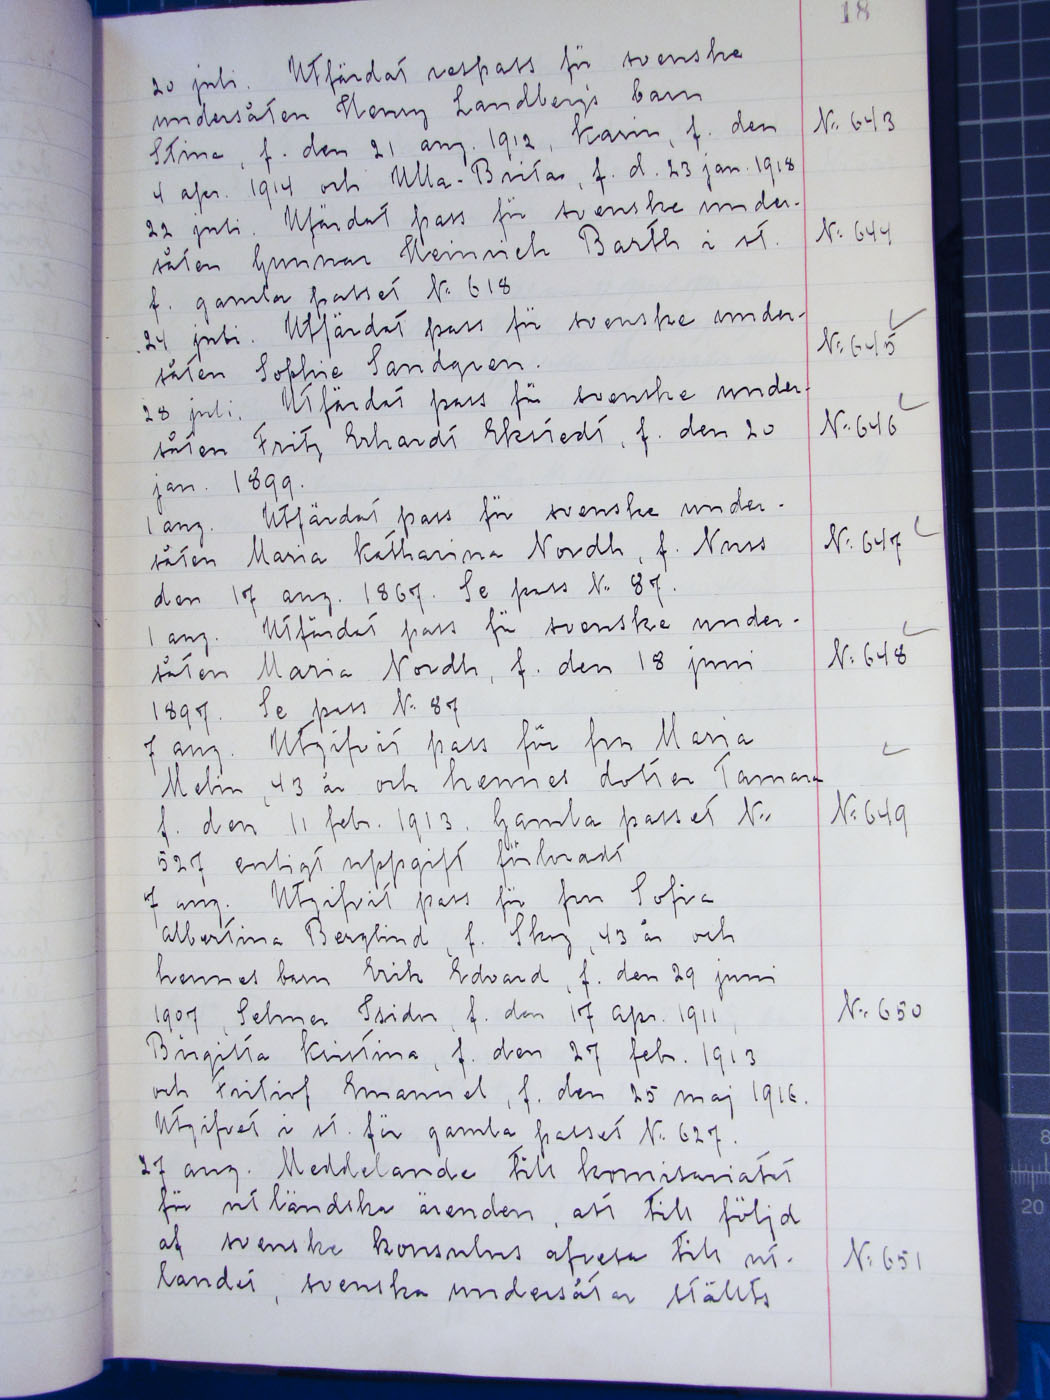 18
20 juli. Utfärdat respass för svenske
undersåten Henry Landbergs barn
Stina, f. den 21 aug. 1912, Karin, f. den No 643
4 apr. 1914 och Ulla-Brita, f. d. 23 jan. 1918
22 juli. Ufärdat pass för svenske under-
såten Gunnar Heinrich Barth i st. No 644
f. gamla passet No 618
24 juli. Utfärdat pass för svenske under-
såten Sophie Sandgren. No 645
28 juli. Utfärdat pass för svenske under-
såten Fritz Erhardt Ekstedt, f. den 20 No 646
jan. 1899.
1 aug. Utfärdat pass för svenske under-
såten Maria Katharina Nordh, f. Nuss No 647
den 17 aug. 1867. Se pass No 87.
1 aug. Utfärdat pass för svenske under-
såten Maria Nordh, f. den 18 juni No 648
1897. Se pass No 87
7 aug. Utgifvit pass för fru Maria
Melin, 43 år och hennes dotter Tamara
f. den 11 febr. 1913. Gamla passet No No 649
527 enligt uppgift förloradt
7 aug. Utgifvit pass för fru Sofia
Albertina Berglind, f. Skog, 43 år och
hennes barn Erik Edvard, f. den 29 juni
1907, Selmer Isidor, f. den 17 apr. 1911, No 650
Birgitta Kristina, f. den 27 feb. 1913
och Fritiof Emanuel, f. den 25 maj 1916.
Utgifvet i st. för gamla passet No 627.
27 aug. Meddelande till komisariatet
för utländska ärenden, att till följd
af svenske konsulns afresa till ut- No 651
landet, svenska undersåtar ställts